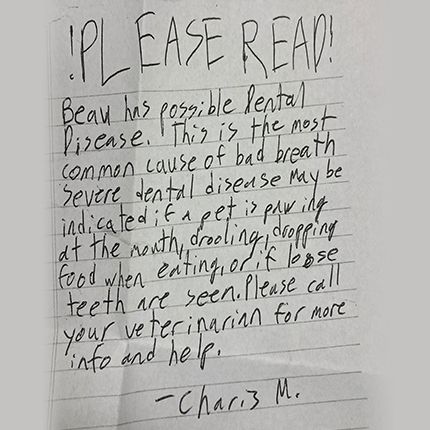 !PLEASE READ!
Beau has possible Dental
Disease. This is the most
common cause of bad breath
Severe dental disease may be
indicated if a pet is pawing
at the mouth, drooling, dropping
food when eating, or if loose
teeth are seen. Please call
your veterinarian for more
info and help.
- Charis M.